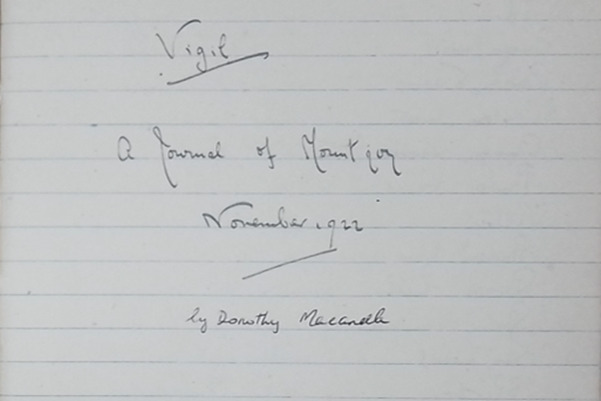 Vigil
A Journal of Mountjoy
November. 1922
by Dorothy Macardle